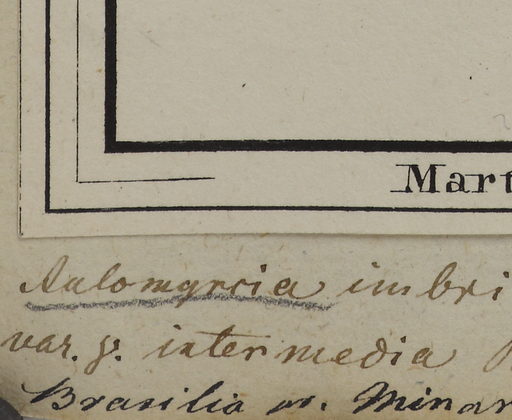 Mart
Aulomyrcia imbri
var. γ. intermedia
Brasilia pr. Minar